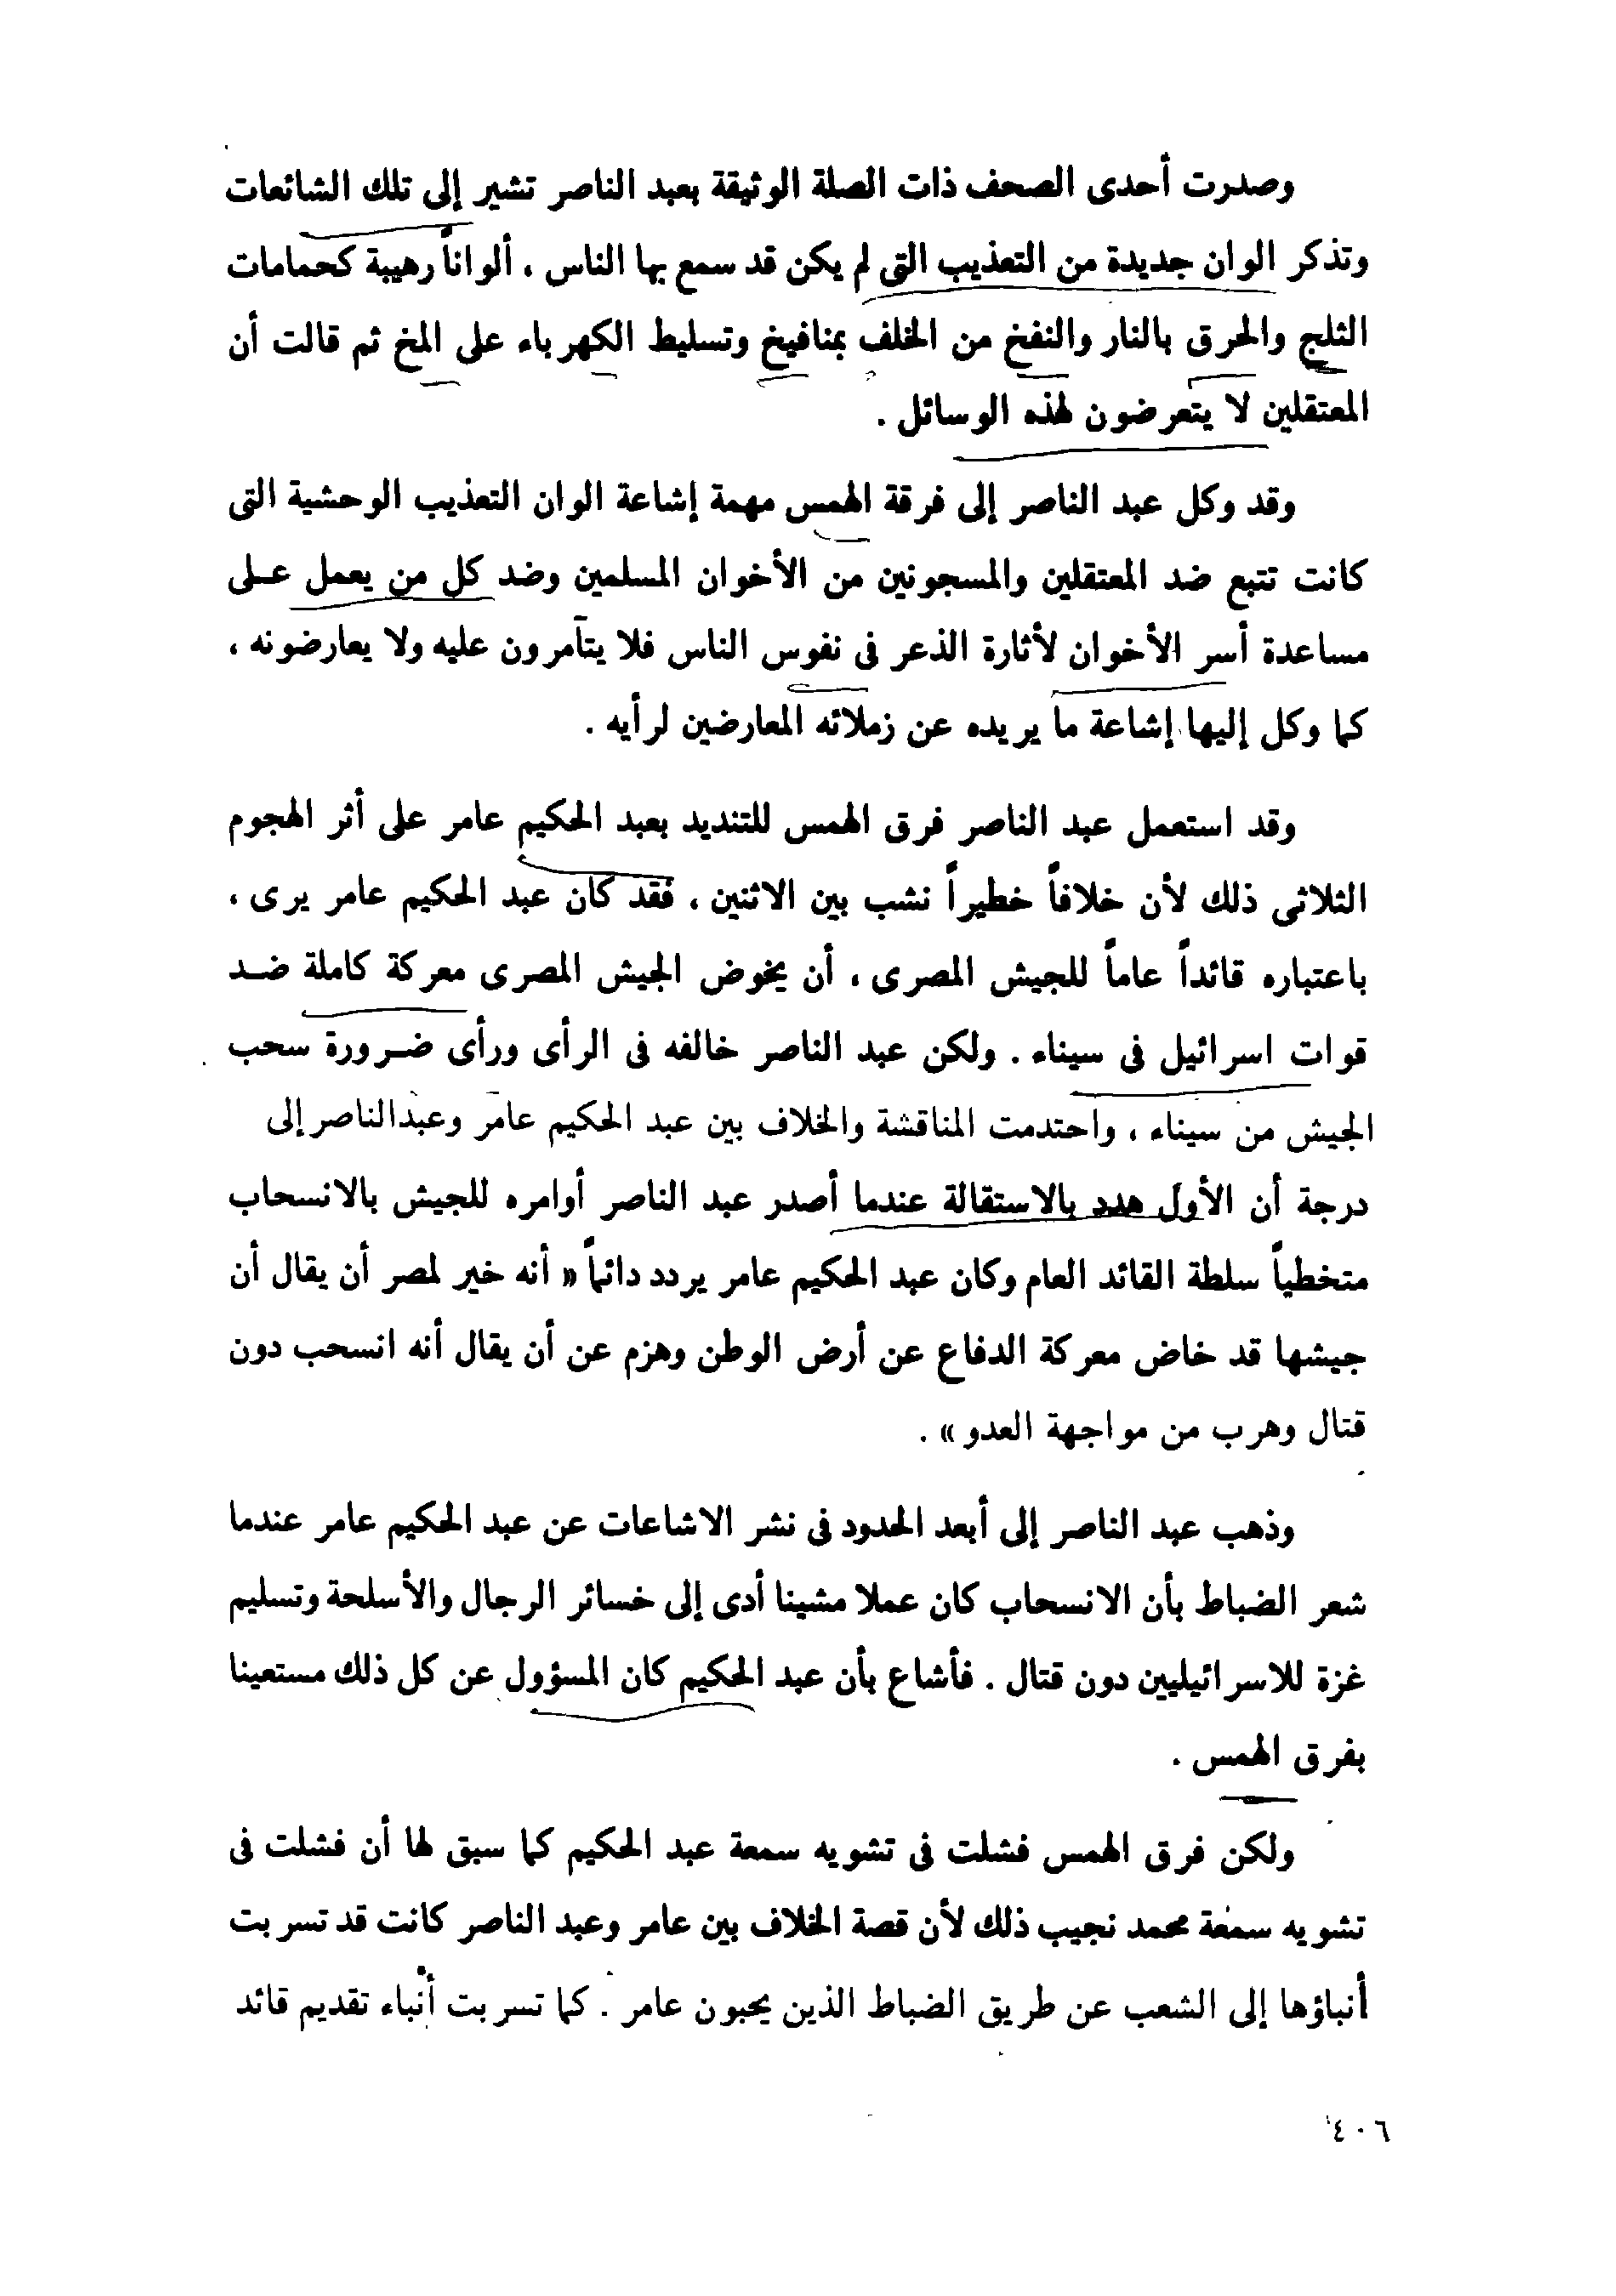 وصدرت أحدى الصحف ذات الصلة الوثيقة بعبد الناصر تشير إلى تلك الشائعات
وتذكر الوان جديدة من التعذيب التى لم يكن قد سمع بها الناس ، ألواناً رهيبة كحمامات
الثلج والحرق بالنار والنفخ من الخلف بمنافيخ وتسليط الكهرباء على المخ ثم قالت أن
المعتقلين لا يتعرضون لهذه الوسائل .
وقد وكل عبد الناصر إلى فرقة الهمس مهمة إشاعة الوان التعذيب الوحشية التى
كانت تتبع ضد المعتقلين والمسجونين من الأخوان المسلمين وضد كل من يعمل على
مساعدة أسر الأخوان لأثارة الذعر فى نفوس الناس فلا يتآمرون عليه ولا يعارضونه ،
كما وكل إليها إشاعة ما يريده عن زملائه المعارضين لرأيه .
وقد استعمل عبد الناصر فرق الهمس للتنديد بعبد الحكيم عامر على أثر الهجوم
الثلاثى ذلك لأن خلافاً خطيراً نشب بين الاثنين ، فقد كان عبد الحكيم عامر يرى ،
باعتباره قائداً عاماً للجيش المصرى ، أن يخوض الجيش المصرى معركة كاملة ضد
قوات اسرائيل فى سيناء . ولكن عبد الناصر خالفه فى الرأى ورأى ضرورة سحب
الجيش من سيناء ، واحتدمت المناقشة والخلاف بين عبد الحكيم عامر وعبدالناصر إلى
درجة أن الأول هدد بالاستقالة عندما أصدر عبد الناصر أوامره للجيش بالانسحاب
متخطياً سلطة القائد العام وكان عبد الحكيم عامر يردد دائماً « أنه خير لمصر أن يقال أن
جيشها قد خاض معركة الدفاع عن أرض الوطن وهزم عن أن يقال أنه انسحب دون
قتال وهرب من مواجهة العدو » .
وذهب عبد الناصر إلى أبعد الحدود فى نشر الاشاعات عن عبد الحكيم عامر عندما
شعر الضباط بأن الانسحاب كان عملا مشينا أدى إلى خسائر الرجال والأسلحة وتسليم
غزة للاسرائيليين دون قتال . فأشاع بأن عبد الحكيم كان المسؤول عن كل ذلك مستعينا
بفرق الهمس .
ولكن فرق الهمس فشلت فى تشويه سمعة عبد الحكيم كما سبق لها أن فشلت فى
تشويه سمعة محمد نجيب ذلك لأن قصة الخلاف بين عامر وعبد الناصر كانت قد تسربت
أنباؤها إلى الشعب عن طريق الضباط الذين يحبون عامر . كما تسربت أنباء تقديم قائد
٤٠٦